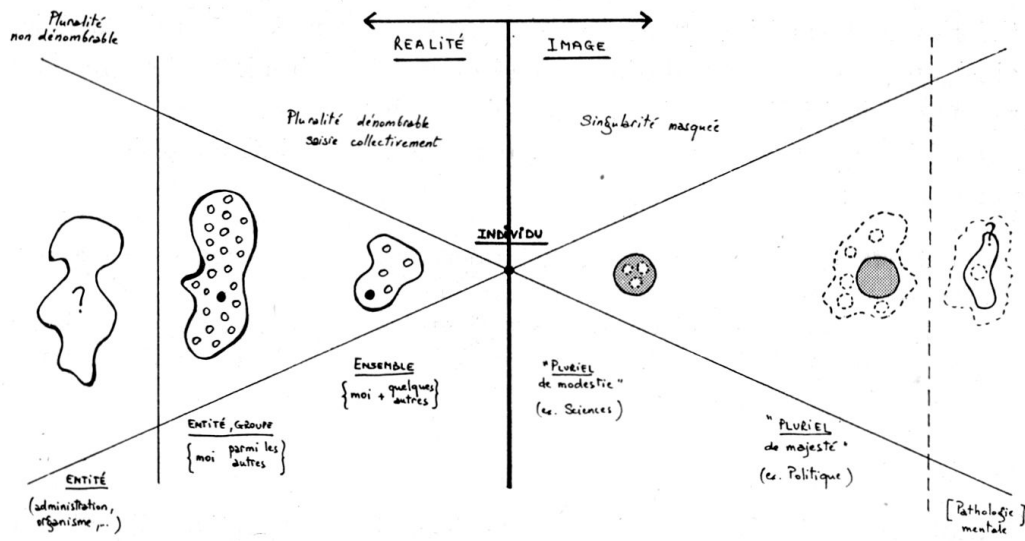 Pluralité
non dénombrable
REALITÉ
IMAGE
Pluralité dénombrable
saisie collectivement
Singularité masquée
INDIVIDU
?
?
ENSEMBLE
{moi + quelques autres}
"PLURIEL
de modestie"
(ex. Sciences)
ENTITÉ, GROUPE
{moi parmi les autres}
"PLURIEL
de majesté"
(ex. Politique)
ENTITÉ
(administration,
organisme,..)
[Pathologie
mentale]